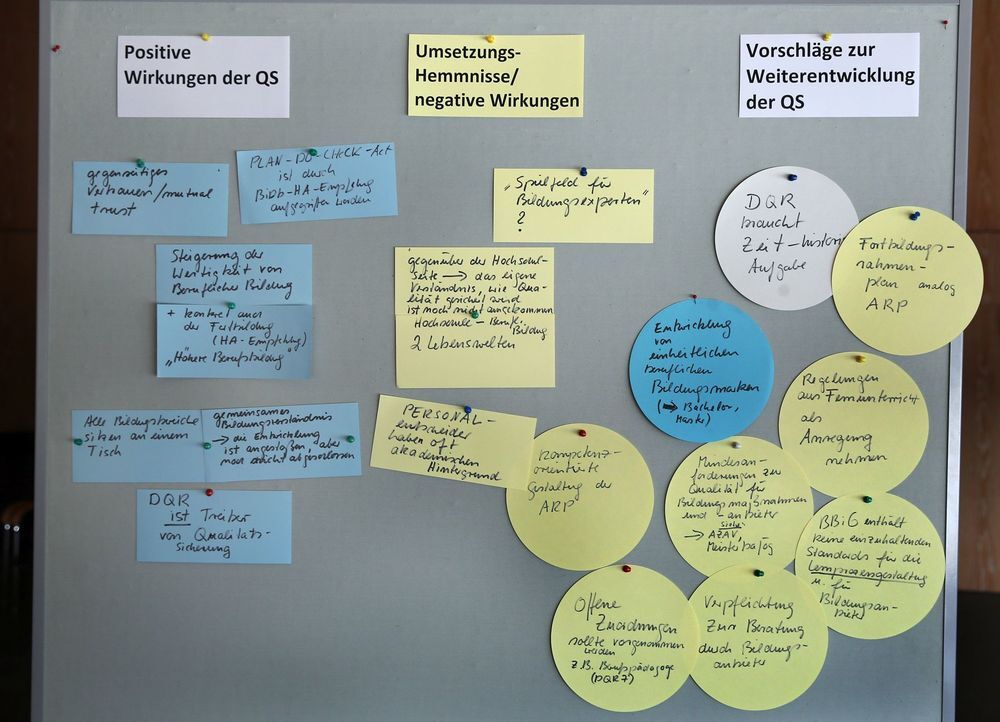 Positive
Wirkungen der QS
gegenseitiges
Vertrauen/mutual
trust
PLAN-DO-CHECK-Act
ist durch
BiBB-HA-Empfehlung
aufgegriffen worden
Steigerung der
Wertigkeit von
Beruflicher Bildung
+ konkret auch
der Fortbildung
(HA-Empfehlung)
„Höhere Berufsbildung"
Alle Bildungsbereiche
sitzen an einem
Tisch
gemeinsames
Bildungsverständnis
→ die Entwicklung
ist angestoßen, aber
noch nicht abgeschlossen
DQR
ist Treiber
von Qualitäts-
sicherung
Umsetzungs-
Hemmnisse/
negative Wirkungen
„Spielfeld für
Bildungsexperten"
?
gegenüber der Hochschul-
seite → das eigene
Verständnis, wie Qua-
lität gesichert wird
ist noch nicht angekommen
Hochschule – Berufl.
Bildung
2 Lebenswelten
PERSONAL-
entscheider
haben oft
akademischen
Hintergrund
Vorschläge zur
Weiterentwicklung
der QS
DQR
braucht
Zeit – histor.
Aufgabe
Fortbildungs-
rahmen-
plan analog
ARP
Entwicklung
von
einheitlichen
beruflichen
Bildungsmarken
(➡ Bachelor,
Master)
Regelungen
aus Fernunterricht
als
Anregung
nehmen
Kompetenz-
orientierte
Gestaltung der
ARP
Mindestan-
forderungen zur
Qualität für
Bildungsmaßnahmen
und -anbieter
siehe
→ AZAV,
Meisterbafög
BBiG enthält
keine einzuhaltenden
Standards für die
Lernprozessgestaltung
u. für
Bildungsan-
bieter
Offene
Zuordnungen
sollte vorgenommen
werden
z.B. Berufspädagoge
(DQR 7)
Verpflichtung
zur Beratung
durch Bildungs-
anbieter